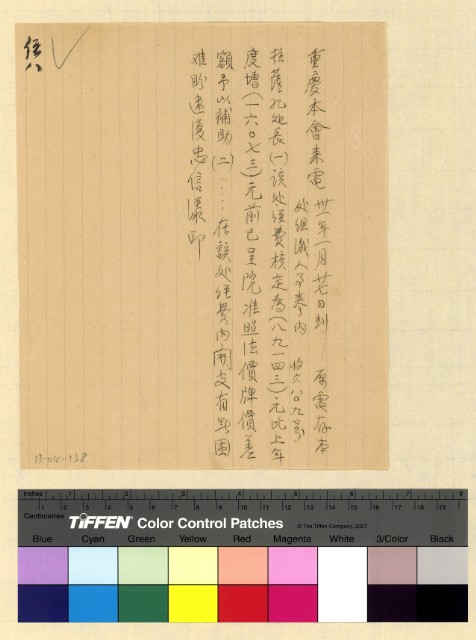 重慶本會來電 卅一年一月廿七日到 原電存本
处組織人事卷內 收文八〇九號
拉薩孔处長(一)該处經費核定為(八九一四三)元比上年
度增(一六〇七三)元前已呈院准照法價牌價差
額予以補助(二)……在該处經費內開支有無困
难盼速復忠信漾印
13-04-138
Inches 1 2 3 4 5 6 7 8
Centimetres 1 2 3 4 5 6 7 8 9 10 11 12 13 14 15 16 17 18 19
TIFFEN Color Control Patches © The Tiffen Company, 2007
Blue Cyan Green Yellow Red Magenta White 3/Color Black